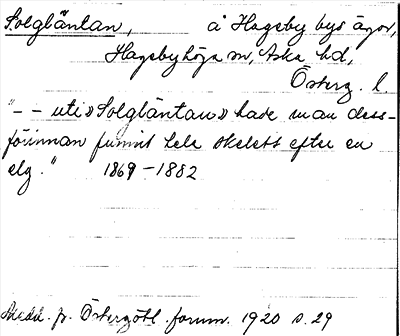 Solgläntan, å Hageby bys ägor,
Hagebyhöga sn, Aska hd,
Österg. l.
"– – uti »Solgläntan» hade man dess-
förinnan funnit hela skelett efter en
elg." 1869–1882
Medd. fr. Östergötl. fornm. 1920 s. 29